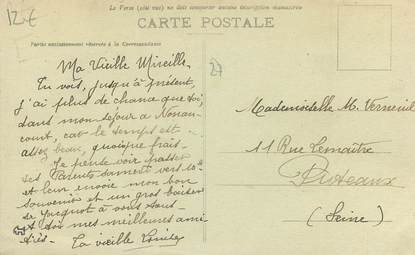 12€
Le Verso (côté vue) ne doit comporter aucune inscription manuscrite
CARTE POSTALE
Partie exclusivement réservée à la Correspondance
27
Ma Vieille Mireille.
Tu vois, jusqu'à présent,
j'ai plus de chance que toi,
dans mon séjour à Nonan-
court, car le temps est
assez beau, quoique frais.
Je pense voir passer
tes Parents samedi vers 10h
et leur envoie mon bon
souvenir et un gros baiser
de à vous tous
et dis mes meilleures ami-
tiés. Ta vieille Louise
Mademoiselle M. Verneuil
11 Rue Lemaître
Puteaux
(Seine)